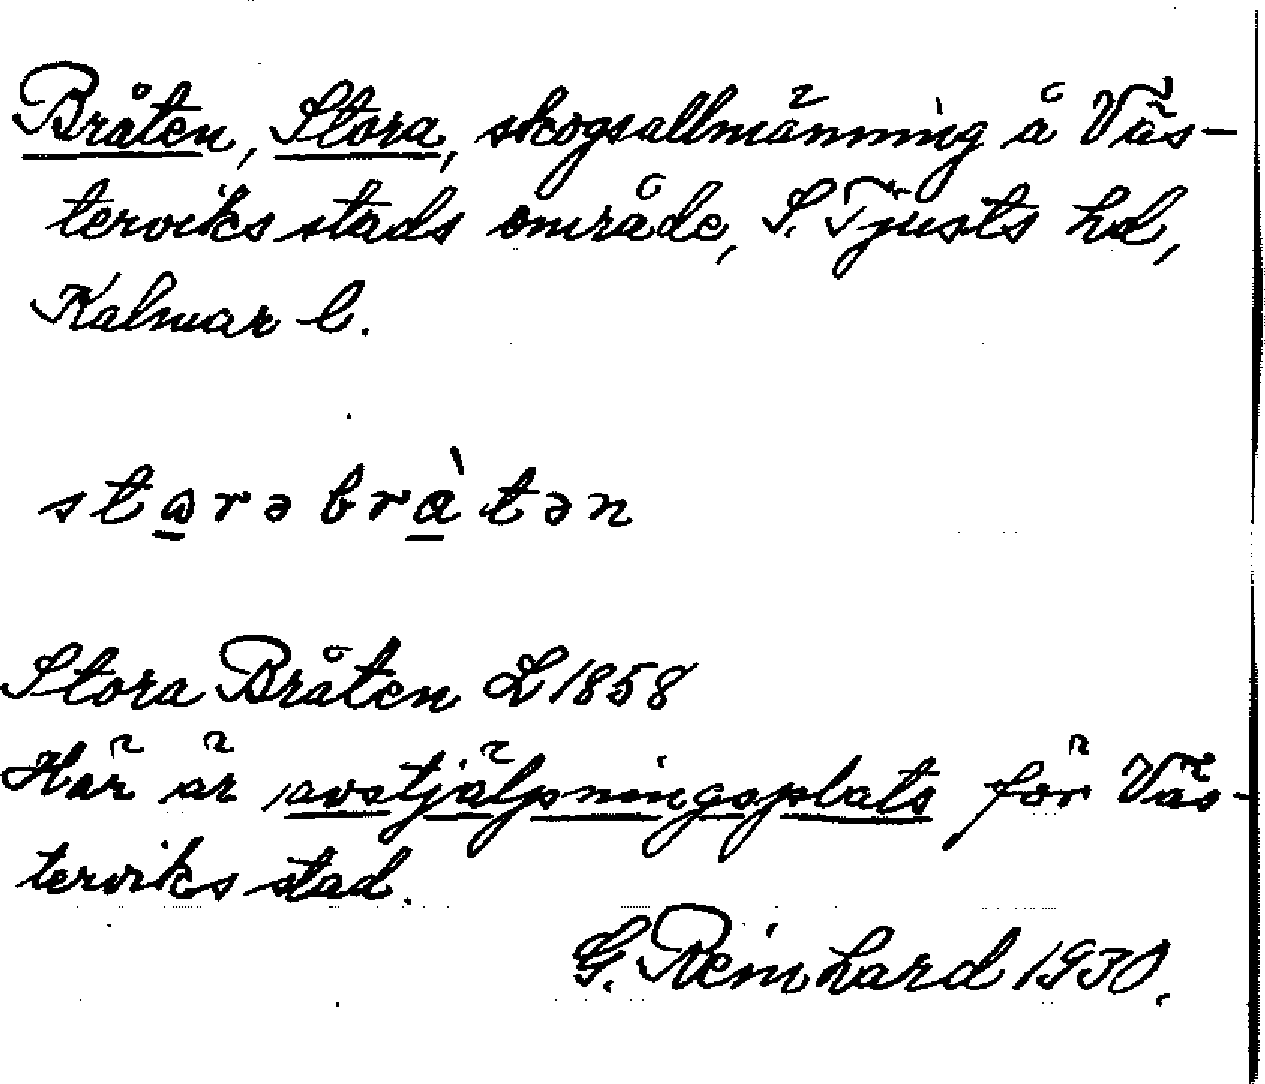 Bråten, Stora, skogsallmänning å Väs-
terviks stads område, S. Tjusts hd,
Kalmar l.
starəbràtən
Stora Bråten L 1858
Här är avstjälpningsplats för Väs-
terviks stad.
G. Reinhard 1930.